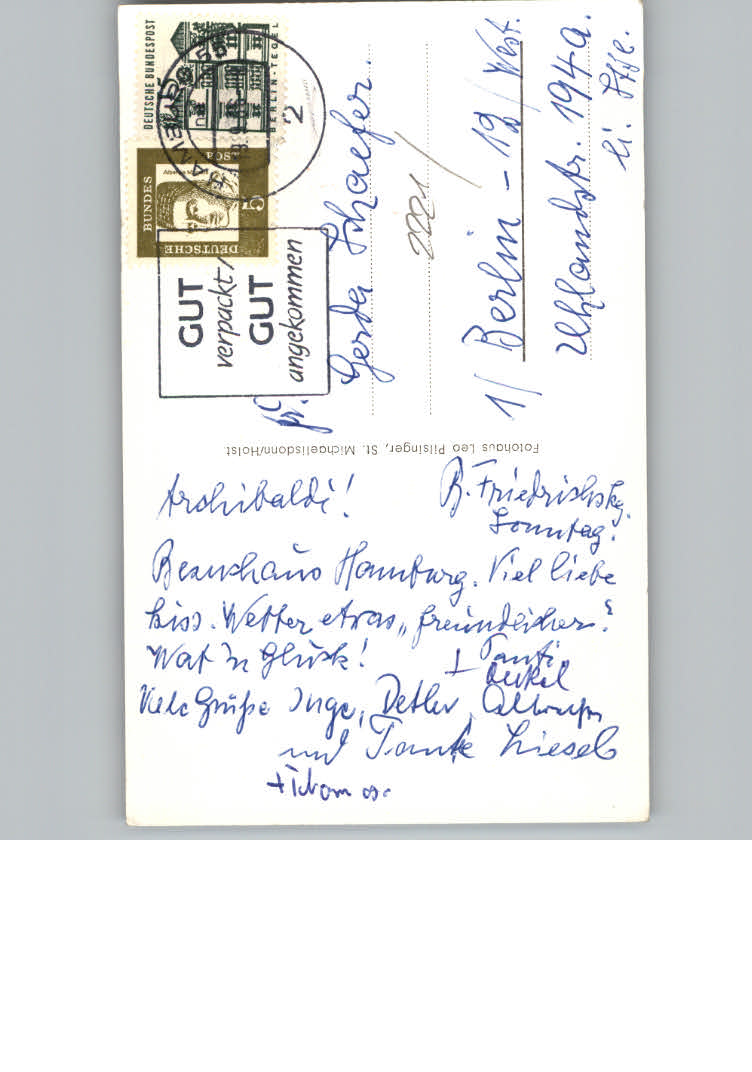 Archibaldi!
B. Friedrichskg.
Sonntag.
Besuchaus Hamburg. Viel liebe
Wetter etwas „freundlicher“.
Wat'n Glück!
Tanti
Onkel
Viele Grüße Inge, Detlev,
und Tante Liesel
Fotohaus Leo Pilsinger, St. Michaelisdonn/Holst
Fr.
Gerda Schaefer.
2221/
1/ Berlin - 19/West.
Uhlandstr. 194a.
li. Stfl.
DEUTSCHE BUNDESPOST
BERLIN-TEGEL
DEUTSCHE
BUNDES
GUT
verpackt/
GUT
angekommen
2